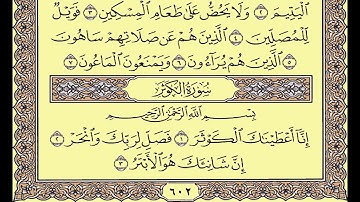 الْيَتِيمَ ۝٢ وَلَا يَحُضُّ عَلَىٰ طَعَامِ الْمِسْكِينِ ۝٣ فَوَيْلٌ
لِّلْمُصَلِّينَ ۝٤ الَّذِينَ هُمْ عَن صَلَاتِهِمْ سَاهُونَ
۝٥ الَّذِينَ هُمْ يُرَاءُونَ ۝٦ وَيَمْنَعُونَ الْمَاعُونَ ۝٧
سُورَةُ الْكَوْثَرِ
بِسْمِ اللَّهِ الرَّحْمَٰنِ الرَّحِيمِ
إِنَّا أَعْطَيْنَاكَ الْكَوْثَرَ ۝١ فَصَلِّ لِرَبِّكَ وَانْحَرْ ۝٢
إِنَّ شَانِئَكَ هُوَ الْأَبْتَرُ ۝٣
٦٠٢